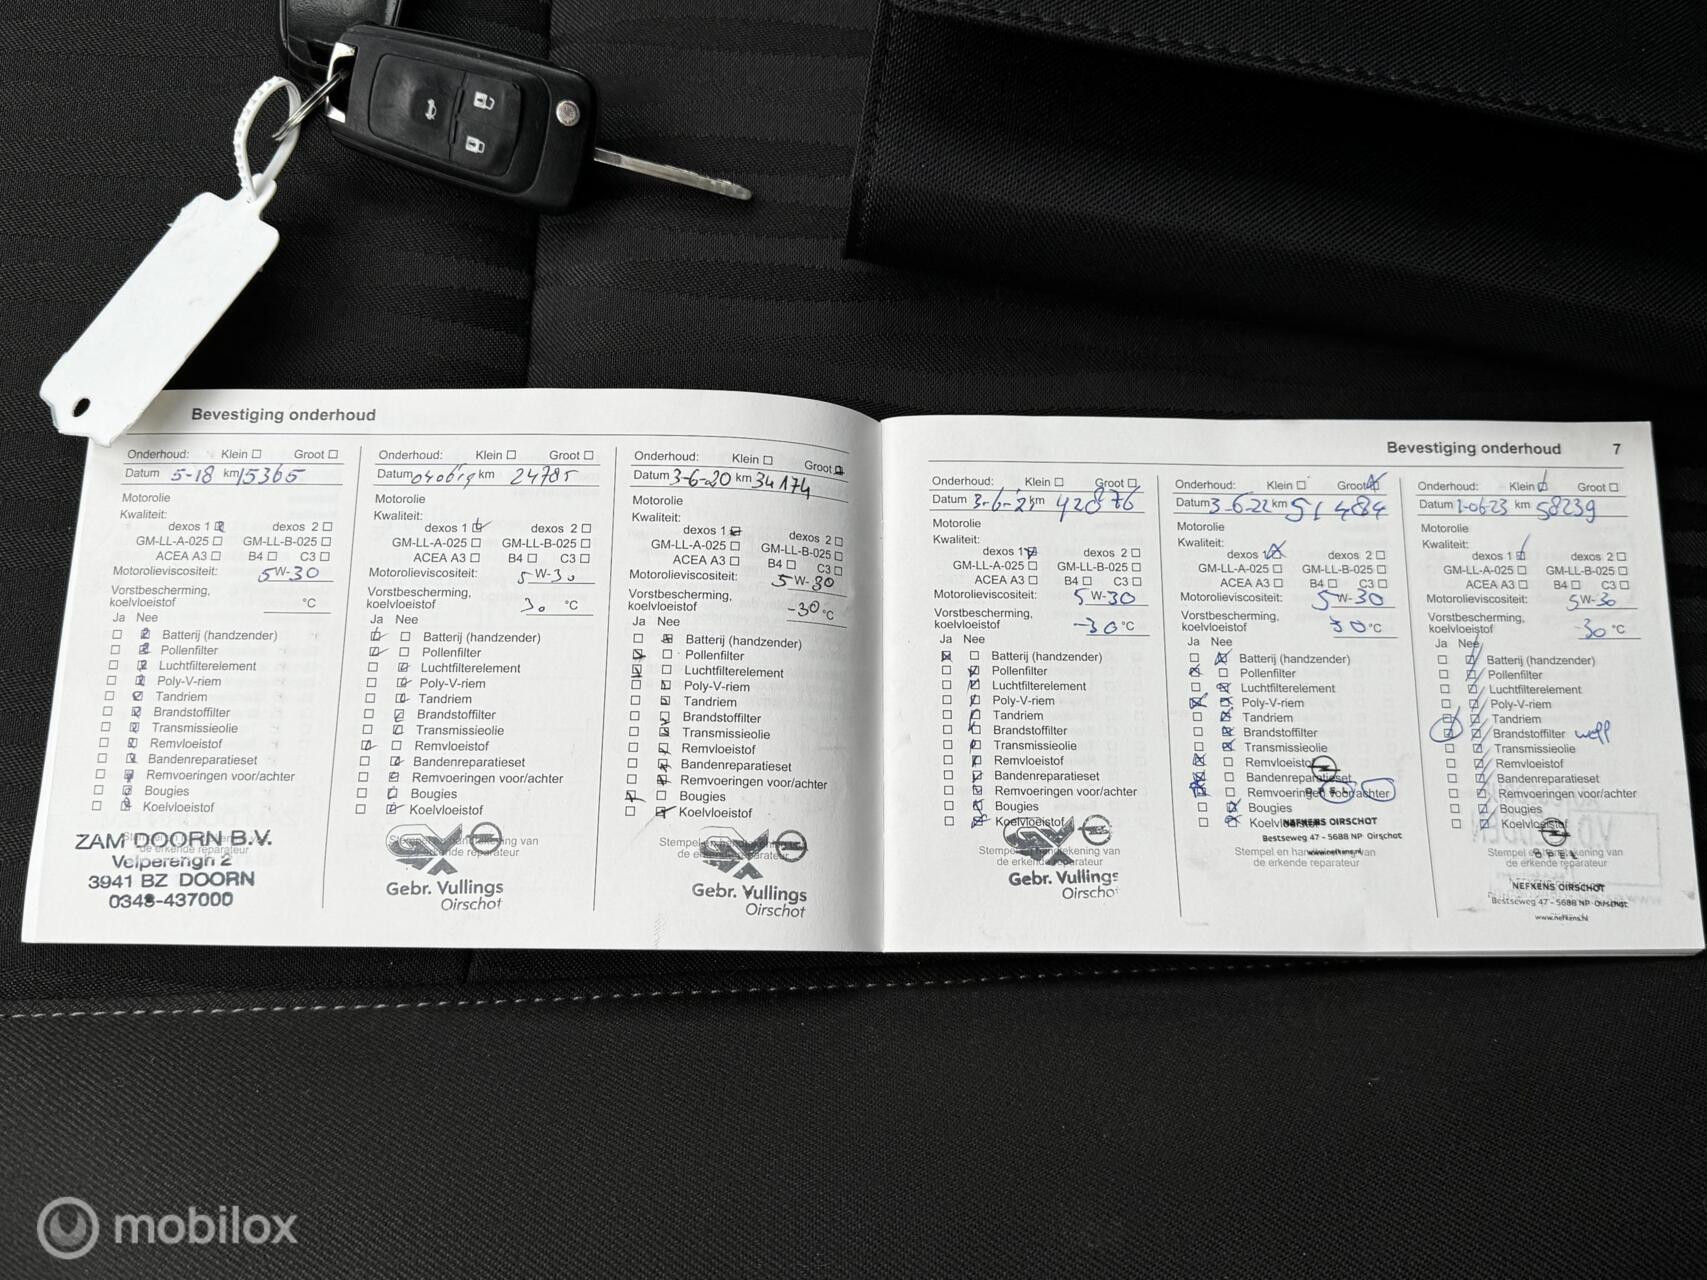 Bevestiging onderhoud
Onderhoud: Klein Groot
Datum 5-18 km 15365
Motorolie
Kwaliteit:
dexos 1 dexos 2
GM-LL-A-025 GM-LL-B-025
ACEA A3 B4 C3
Motorolieviscositeit: 5W-30
Vorstbescherming,
koelvloeistof °C
Ja Nee
Batterij (handzender)
Pollenfilter
Luchtfilterelement
Poly-V-riem
Tandriem
Brandstoffilter
Transmissieolie
Remvloeistof
Bandenreparatieset
Remvoeringen voor/achter
Bougies
Koelvloeistof
ZAM DOORN B.V.
Velperengh 2
3941 BZ DOORN
0348-437000
Onderhoud: Klein Groot
Datum 040619 km 24785
Motorolie
Kwaliteit:
dexos 1 dexos 2
GM-LL-A-025 GM-LL-B-025
ACEA A3 B4 C3
Motorolieviscositeit: 5W-30
Vorstbescherming,
koelvloeistof 30 °C
Ja Nee
Batterij (handzender)
Pollenfilter
Luchtfilterelement
Poly-V-riem
Tandriem
Brandstoffilter
Transmissieolie
Remvloeistof
Bandenreparatieset
Remvoeringen voor/achter
Bougies
Koelvloeistof
Stempel en handtekening van
de erkende reparateur
Gebr. Vullings
Oirschot
Onderhoud: Klein Groot
Datum 3-6-20 km 34174
Motorolie
Kwaliteit:
dexos 1 dexos 2
GM-LL-A-025 GM-LL-B-025
ACEA A3 B4 C3
Motorolieviscositeit: 5W-30
Vorstbescherming,
koelvloeistof -30 °C
Ja Nee
Batterij (handzender)
Pollenfilter
Luchtfilterelement
Poly-V-riem
Tandriem
Brandstoffilter
Transmissieolie
Remvloeistof
Bandenreparatieset
Remvoeringen voor/achter
Bougies
Koelvloeistof
Stempel en handtekening van
de erkende reparateur
Gebr. Vullings
Oirschot
Bevestiging onderhoud 7
Onderhoud: Klein Groot
Datum 3-6-21 km 42876
Motorolie
Kwaliteit:
dexos 1 dexos 2
GM-LL-A-025 GM-LL-B-025
ACEA A3 B4 C3
Motorolieviscositeit: 5W-30
Vorstbescherming,
koelvloeistof -30 °C
Ja Nee
Batterij (handzender)
Pollenfilter
Luchtfilterelement
Poly-V-riem
Tandriem
Brandstoffilter
Transmissieolie
Remvloeistof
Bandenreparatieset
Remvoeringen voor/achter
Bougies
Koelvloeistof
Stempel en handtekening van
de erkende reparateur
Gebr. Vullings
Oirschot
Onderhoud: Klein Groot
Datum 3-6-22 km 51484
Motorolie
Kwaliteit:
dexos 1 dexos 2
GM-LL-A-025 GM-LL-B-025
ACEA A3 B4 C3
Motorolieviscositeit: 5W-30
Vorstbescherming,
koelvloeistof 30 °C
Ja Nee
Batterij (handzender)
Pollenfilter
Luchtfilterelement
Poly-V-riem
Tandriem
Brandstoffilter
Transmissieolie
Remvloeistof
Bandenreparatieset
Remvoeringen voor/achter
OPEL
Bougies
Koelvloeistof
NEFKENS OIRSCHOT
Bestseweg 47 - 5688 NP Oirschot
www.nefkens.nl
Stempel en handtekening van
de erkende reparateur
Onderhoud: Klein Groot
Datum 1-06-23 km 58239
Motorolie
Kwaliteit:
dexos 1 dexos 2
GM-LL-A-025 GM-LL-B-025
ACEA A3 B4 C3
Motorolieviscositeit: 5W-30
Vorstbescherming,
koelvloeistof -30 °C
Ja Nee
Batterij (handzender)
Pollenfilter
Luchtfilterelement
Poly-V-riem
Tandriem
Brandstoffilter
Transmissieolie
Remvloeistof
Bandenreparatieset
Remvoeringen voor/achter
Bougies
Koelvloeistof
Stempel en handtekening van
de erkende reparateur
OPEL
NEFKENS OIRSCHOT
Bestseweg 47 - 5688 NP Oirschot
www.nefkens.nl
mobilox